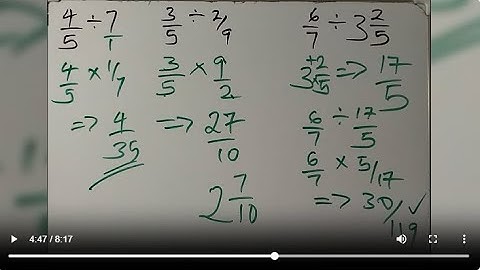 4/5 ÷ 7/1
4/5 × 1/7
=> 4/35
3/5 ÷ 2/9
3/5 × 9/2
=> 27/10
2 7/10
6/7 ÷ 3 2/5
3 +2/×5 => 17/5
6/7 ÷ 17/5
6/7 × 5/17
=> 30/119
4:47 / 8:17